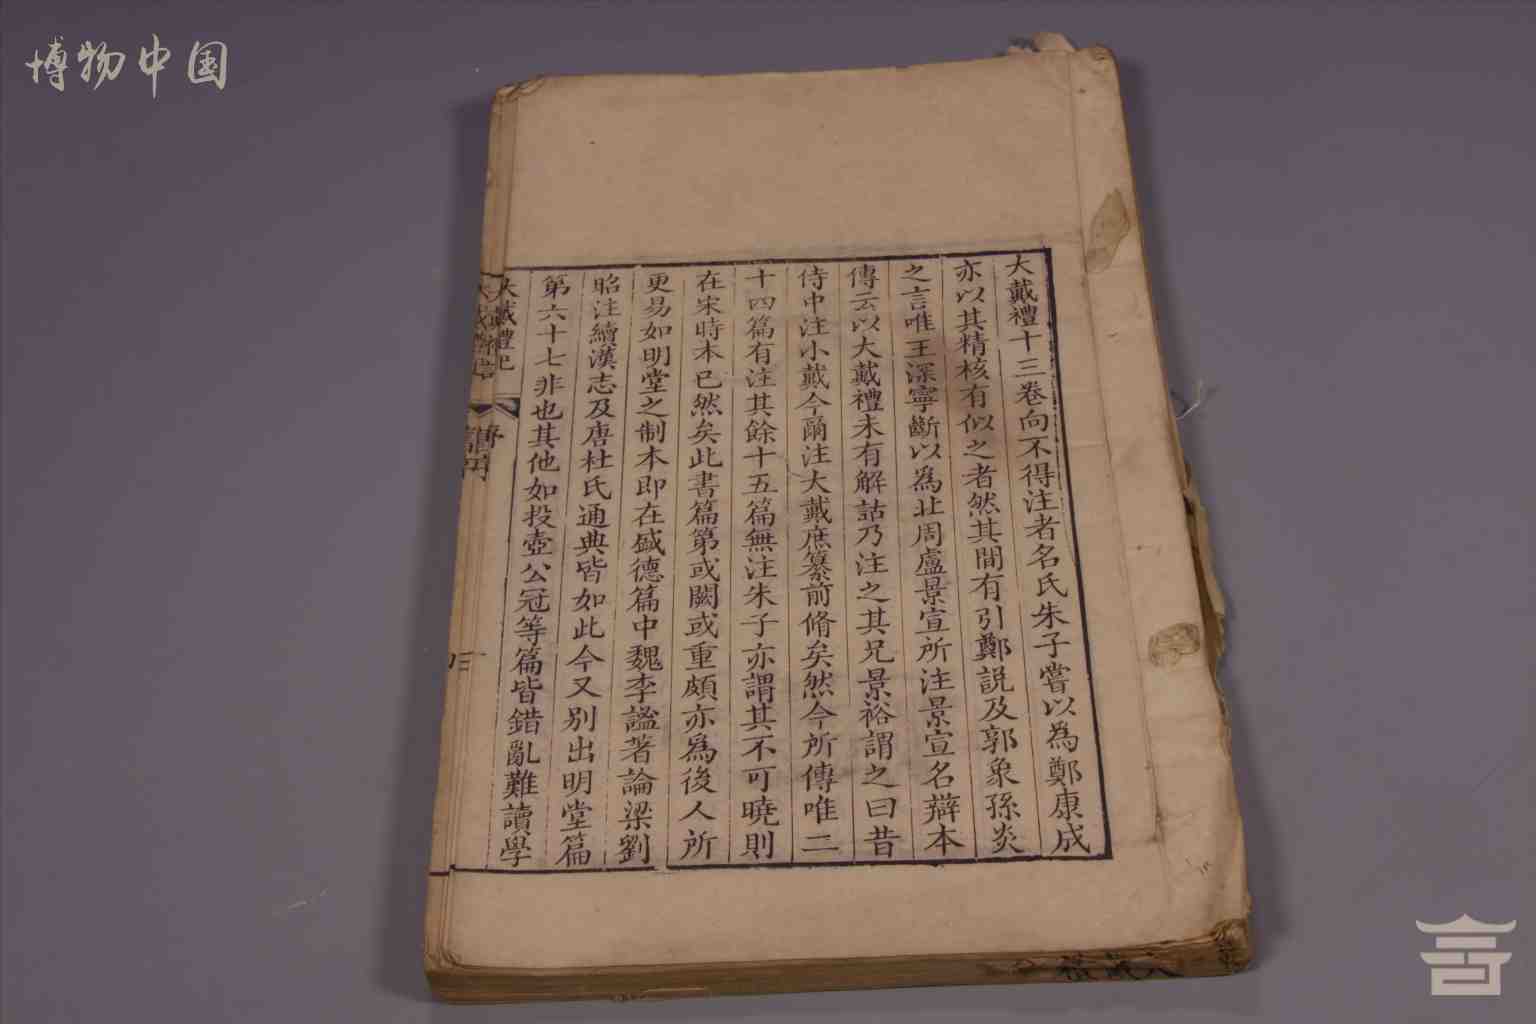 博物中国
大戴禮十三卷向不得注者名氏朱子嘗以為鄭康成
亦以其精核有似之者然其間有引鄭說及郭象孫炎
之言唯王深寧斷以為北周盧景宣所注景宣名辯本
傳云以大戴禮未有解詁乃注之其兄景裕謂之曰昔
侍中注小戴今爾注大戴庶纂前脩矣然今所傳唯二
十四篇有注其餘十五篇無注朱子亦謂其不可曉則
在宋時本已然矣此書篇第或闕或重頗亦為後人所
更易如明堂之制本即在盛德篇中魏李謐著論梁劉
昭注續漢志及唐杜氏通典皆如此今又別出明堂篇
第六十七非也其他如投壺公冠等篇皆錯亂難讀學
大戴禮記